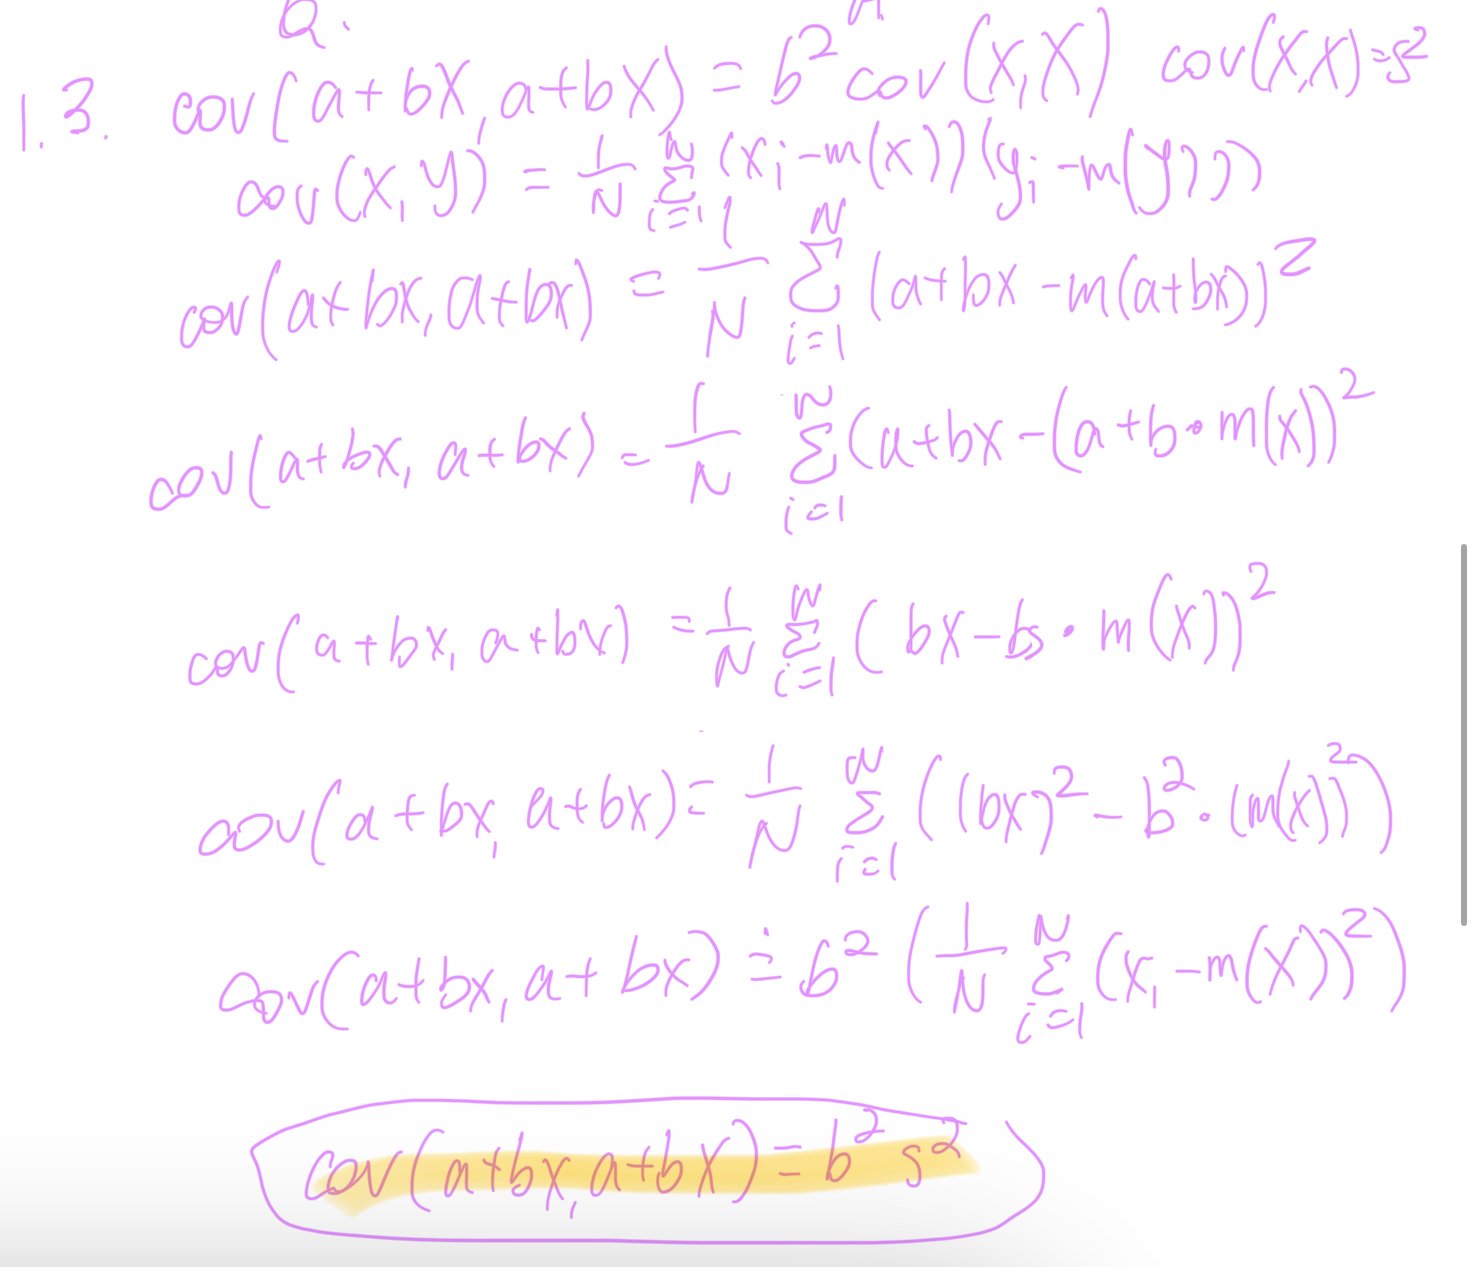 Q. A.
1.3. cov(a+bX, a+bX) = b² cov(X,X) cov(X,X)=s²
cov(X,Y) = 1/N Σ_{i=1}^{N} (x_i-m(x))(y_i-m(y)))
cov(a+bx, a+bx) = 1/N Σ_{i=1}^{N} (a+bx-m(a+bx))²
cov(a+bx, a+bx) = 1/N Σ_{i=1}^{N} (a+bx-(a+b•m(x))²
cov(a+bx, a+bx) = 1/N Σ_{i=1}^{N} (bx-b•m(x))²
cov(a+bx, a+bx) = 1/N Σ_{i=1}^{N} ((bx)²-b²•(m(x))²)
cov(a+bx, a+bx) = b² (1/N Σ_{i=1}^{N} (x_i-m(X))²)
cov(a+bx, a+bX) = b² s²